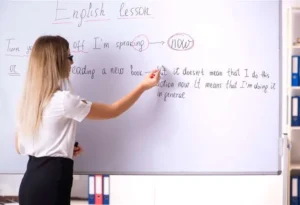 English lesson
Turn off, I'm spracing → now
reading a new book → It doesn't mean that I do this
now It means that I'm doing it
in general